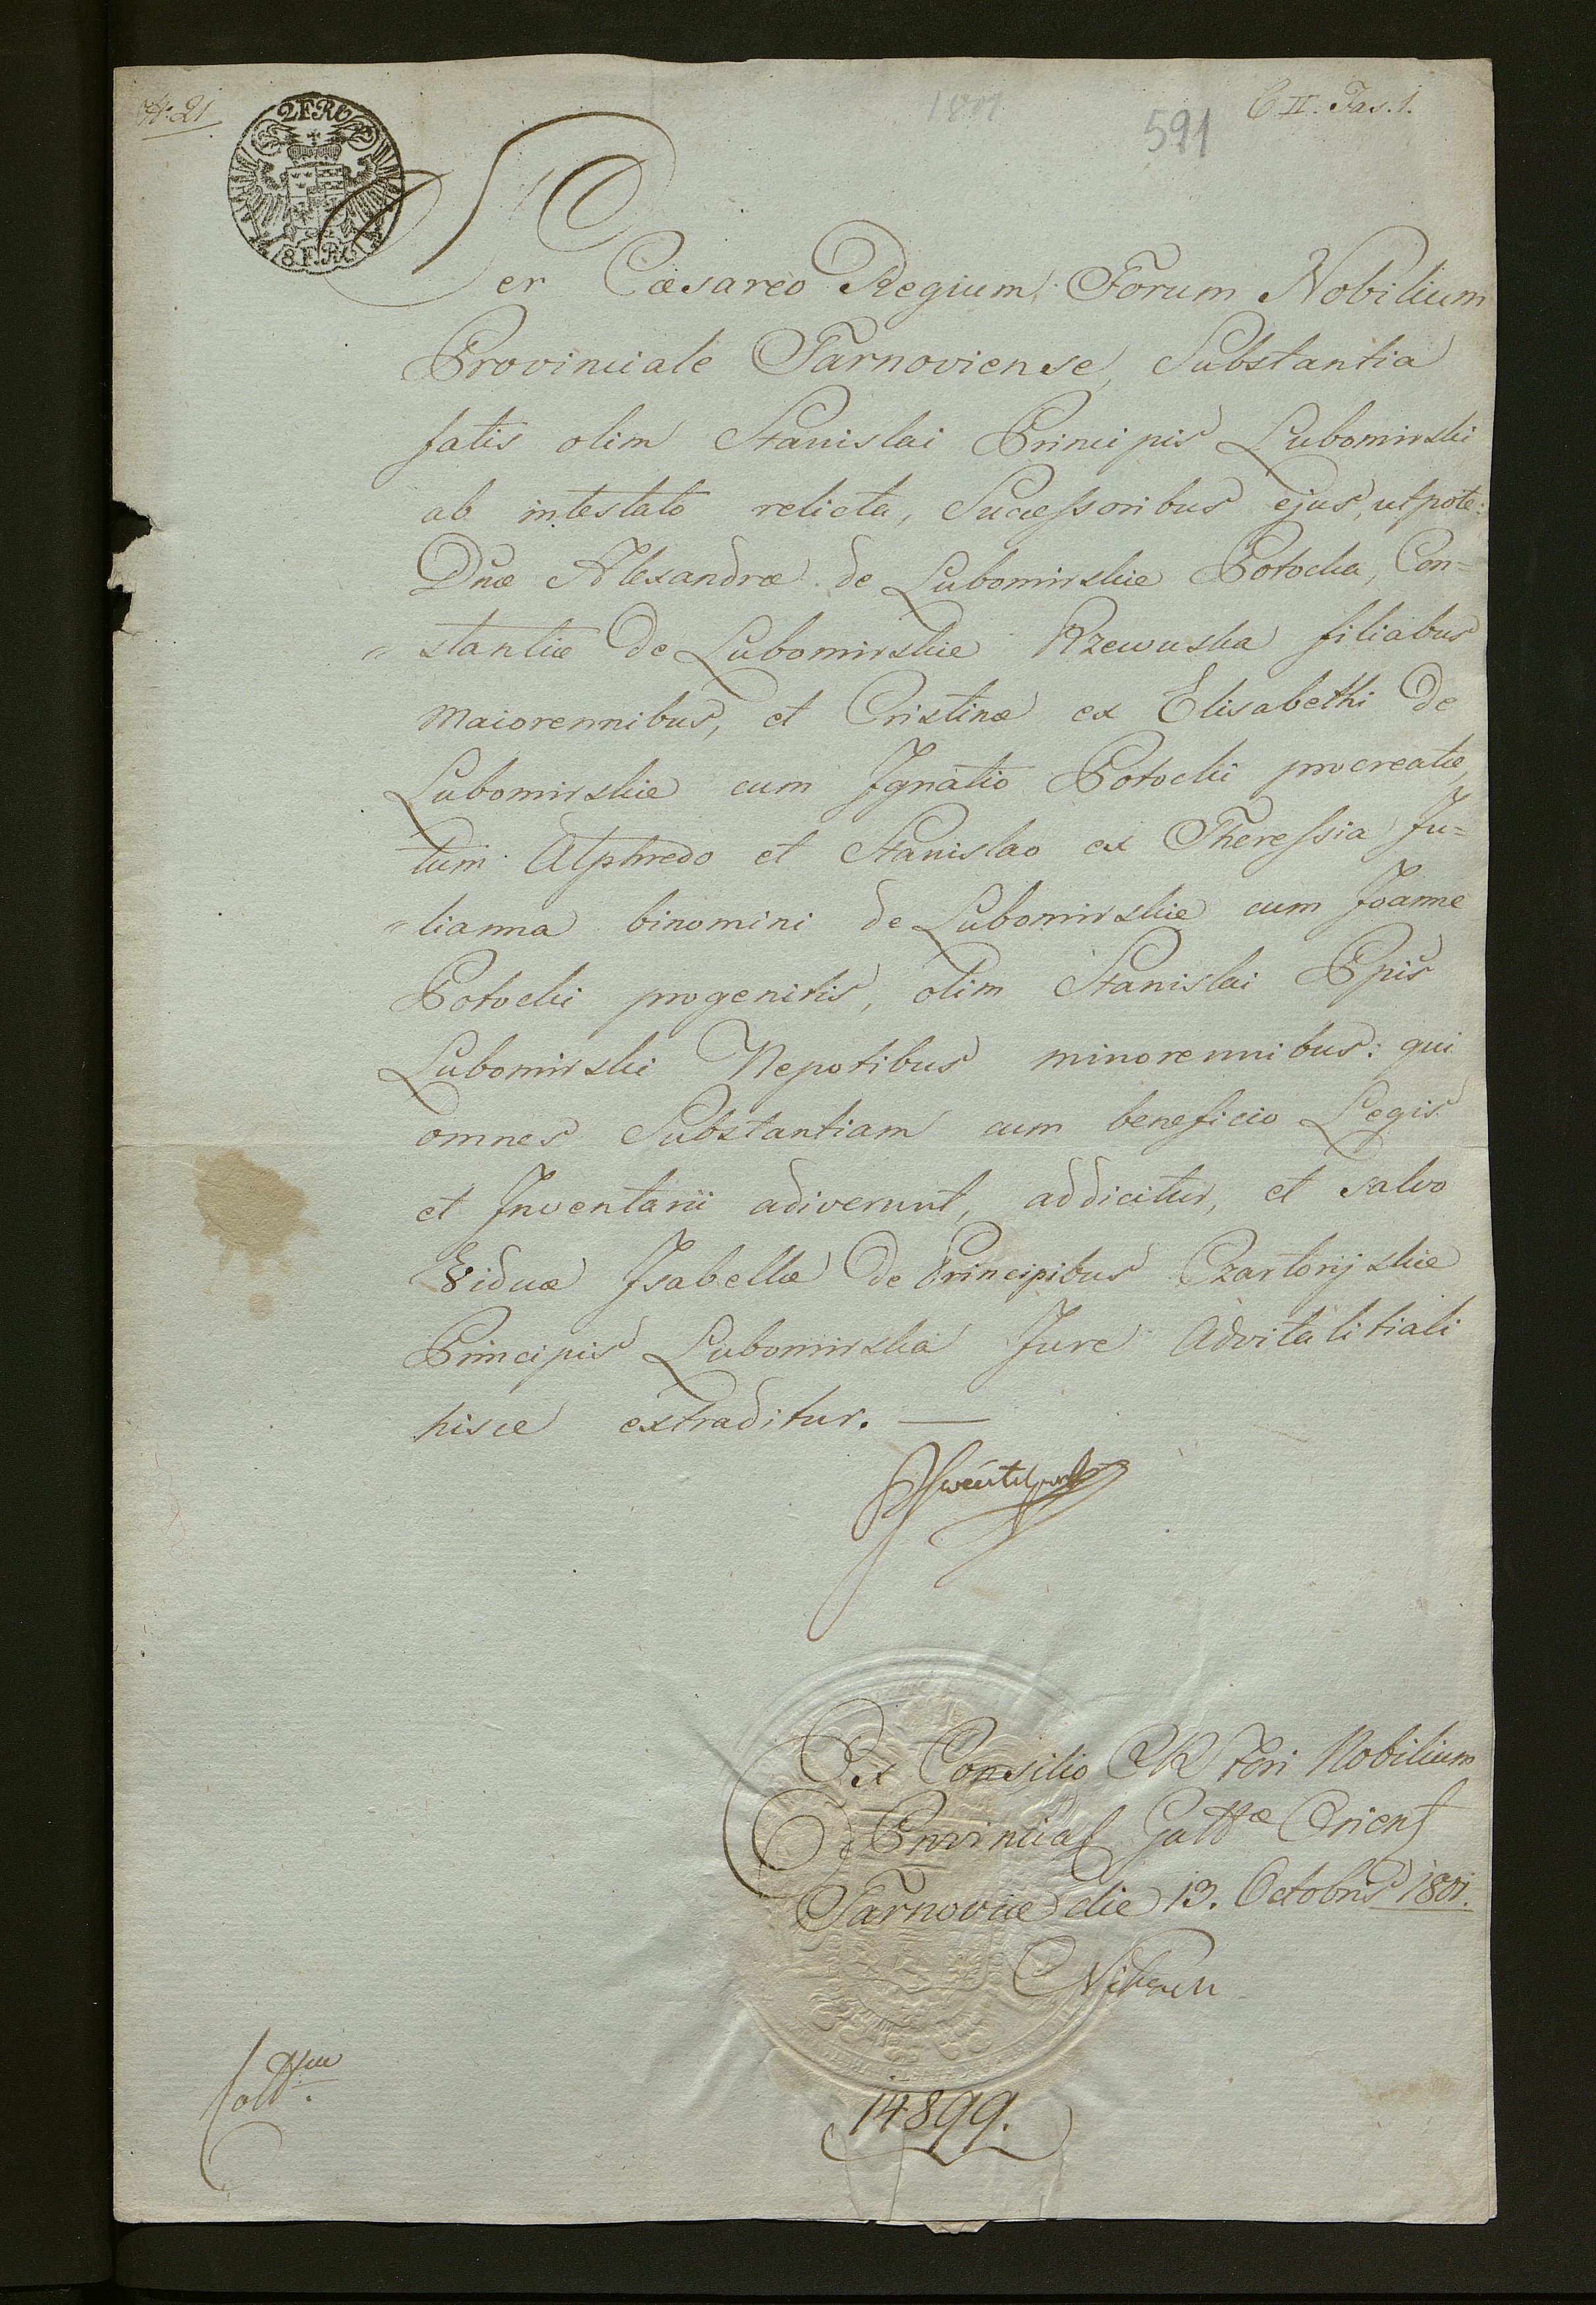 N. 21
1801
591
C II. Fas. 1.
2FRC
8FRC
Per Cæsareo Regium Forum Nobilium
Provinciale Tarnoviense, Substantia
fatis olim Stanislai Principis Lubomirski
ab intestato relicta, Sucessoribus ejus, utpote:
Dnæ Alexandræ de Lubomirskie Potocka, Con=
stantiæ de Lubomirskie Rzewuska filiabus
maiorennibus, et Cristinæ ex Elisabethi de
Lubomirskie cum Ignatio Potocki procreatæ,
tum Alphredo et Stanislao ex Theressia Ju=
lianna binomini de Lubomirskie cum Joanne
Potocki progenitis, olim Stanislai Ppis
Lubomirski Nepotibus minorennibus: qui
omnes Substantiam cum beneficio Legis
et Inventarii adiverunt, addicitur, et salvo
Viduæ Isabellæ de Principibus Czartoryskie
Principis Lubomirska Jure Advitalitiali
hisce extraditur. —
Ex Consilio CR Fori Nobilium
Provincial Gallæ Orient
Tarnoviæ die 13. Octobris 1801.
14899.